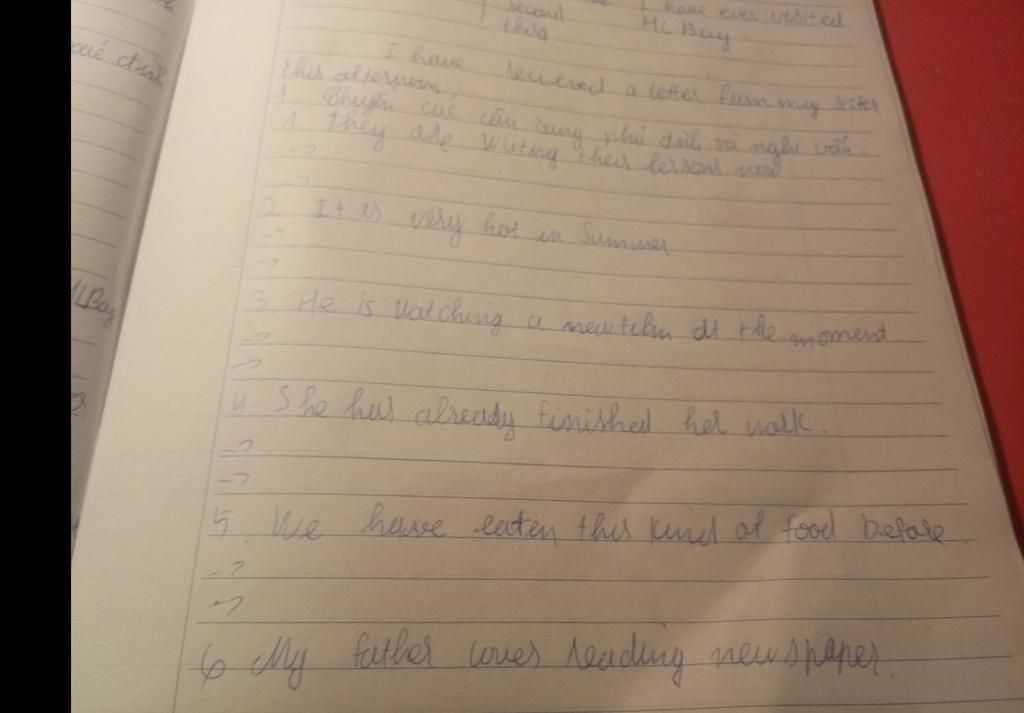 xác định
I have ever visited
second
HL Bay
thing
I have recieved a letter from my sister
this afternoon.
1. Chuyển các câu sang phủ định và nghi vấn.
1. They are writing their lessons now
->
->
2. It is very hot in Summer
->
->
3. He is watching a new film at the moment
->
->
HLBay
4. She has already finished her work.
->
->
5. We have eaten this kind of food before
->
->
6 My father loves reading newspaper